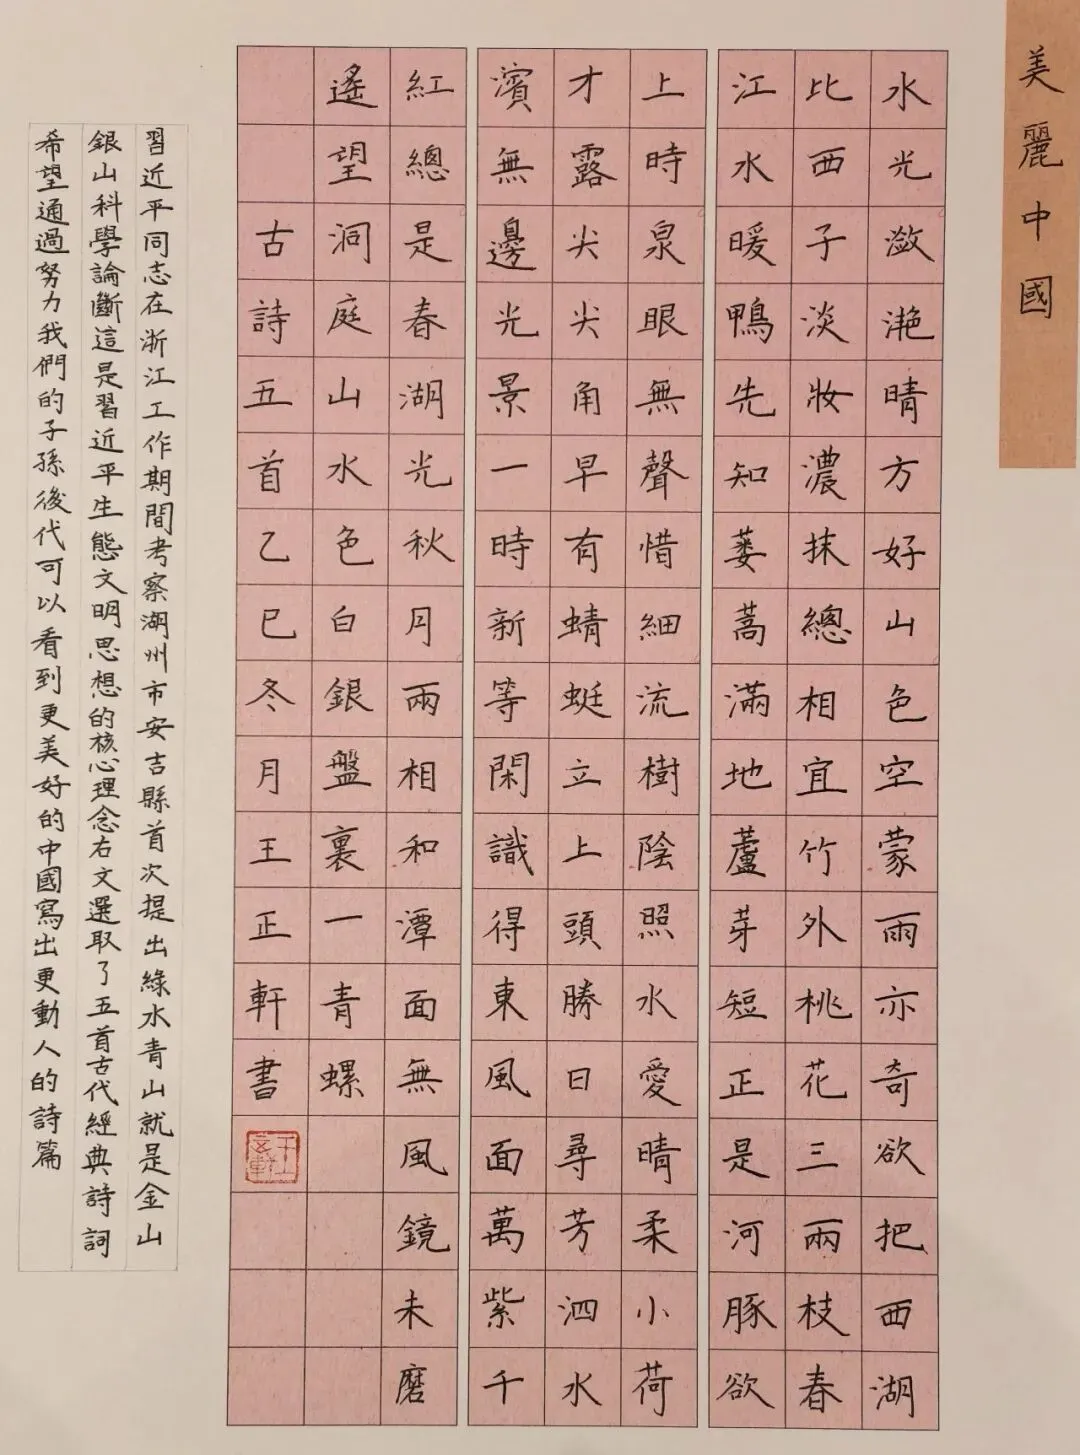 美麗中國
水光潋滟晴方好山色空蒙雨亦奇欲把西湖
比西子淡妝濃抹總相宜竹外桃花三兩枝春
江水暖鴨先知蒌蒿滿地蘆芽短正是河豚欲
上時泉眼無聲惜細流樹陰照水愛晴柔小荷
才露尖尖角早有蜻蜓立上頭勝日尋芳泗水
濱無邊光景一時新等閑識得東風面萬紫千
紅總是春湖光秋月兩相和潭面無風鏡未磨
遙望洞庭山水色白銀盤裏一青螺
古詩五首乙巳冬月王正軒書
習近平同志在浙江工作期間考察湖州市安吉縣首次提出綠水青山就是金山
銀山科學論斷這是習近平生態文明思想的核心理念右文選取了五首古代經典詩詞
希望通過努力我們的子孫後代可以看到更美好的中國寫出更動人的詩篇